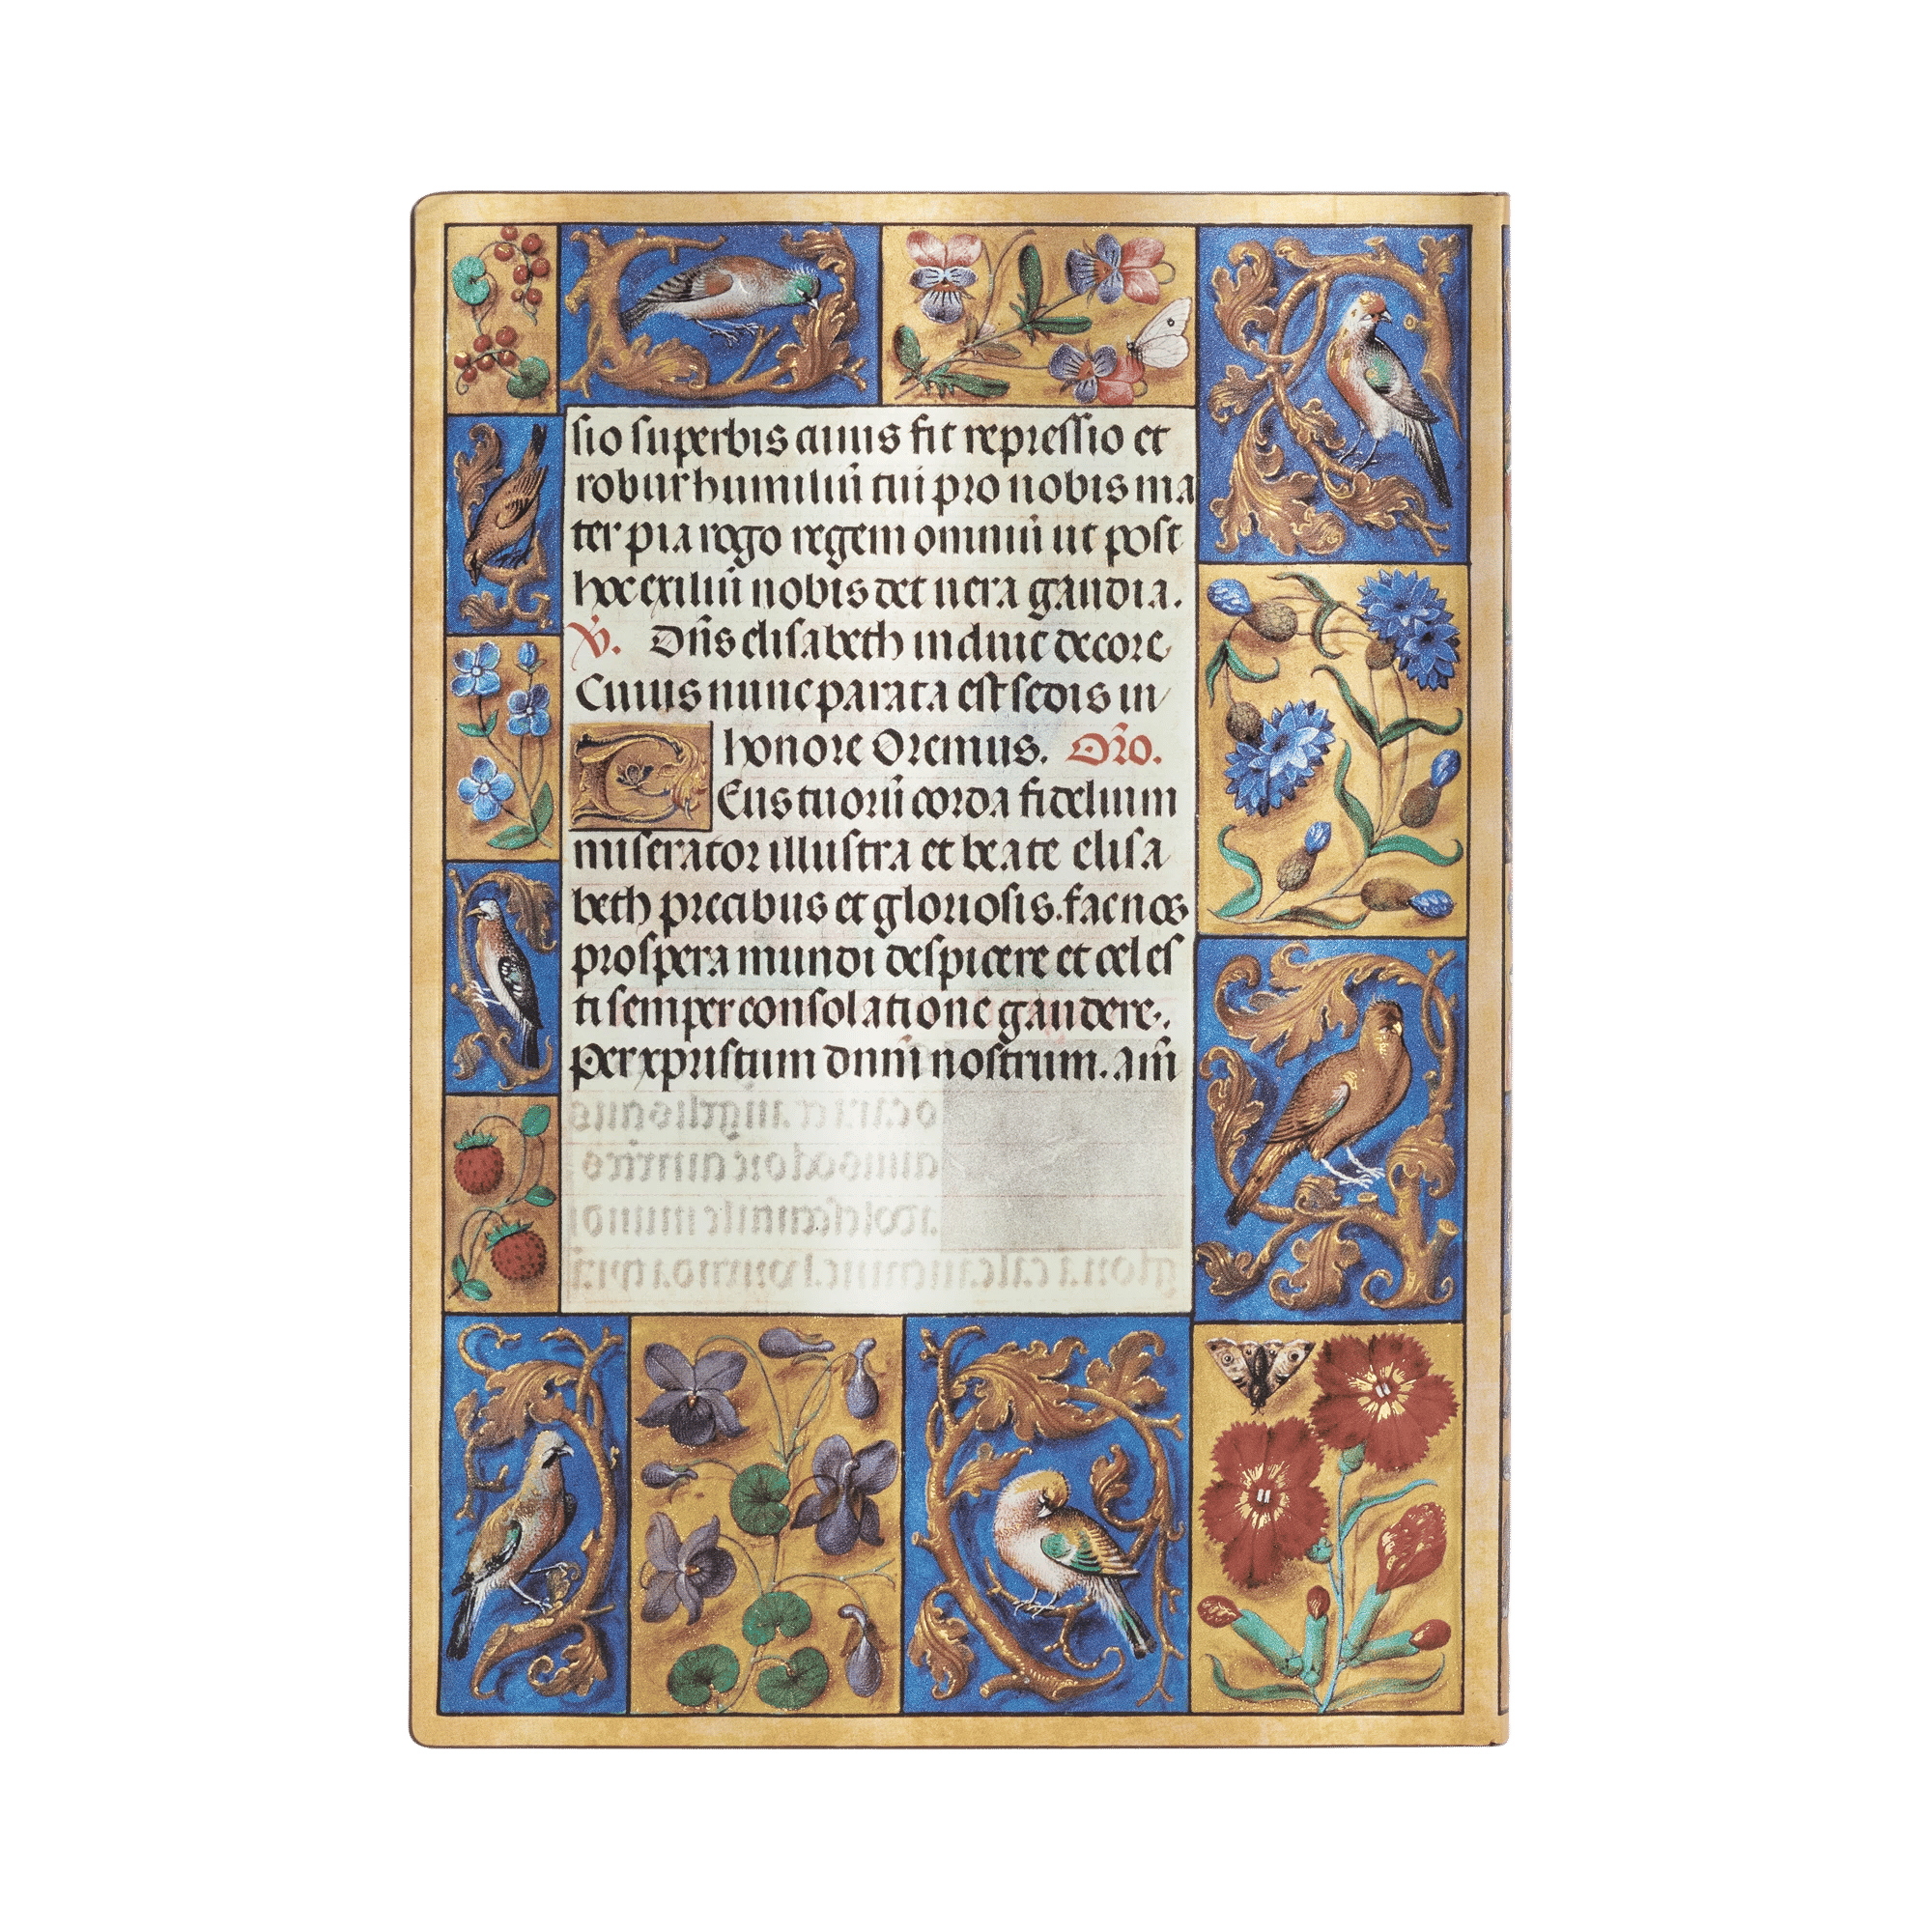 sio superbis cuius fit repressio et
robur humiliū tui pro nobis ma
ter pia rogo regem omniū ut post
hoc exiliū nobis det uera gaudia.
V̄. Dn̄s elisabeth induit decore
Cuius nunc parata est sedis in
honore Oremus. Or̄o.
Deus tuorū corda fidelium
miserator illustra et beate elisa
beth precibus et gloriosis. fac nos
prospera mundi despicere et celes
ti semper consolatione gaudere.
Per xpristum dn̄m nostrum. Am̄